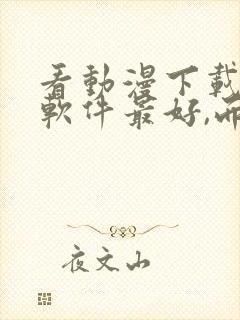 看動漫下載
軟件最好,而
夜文山